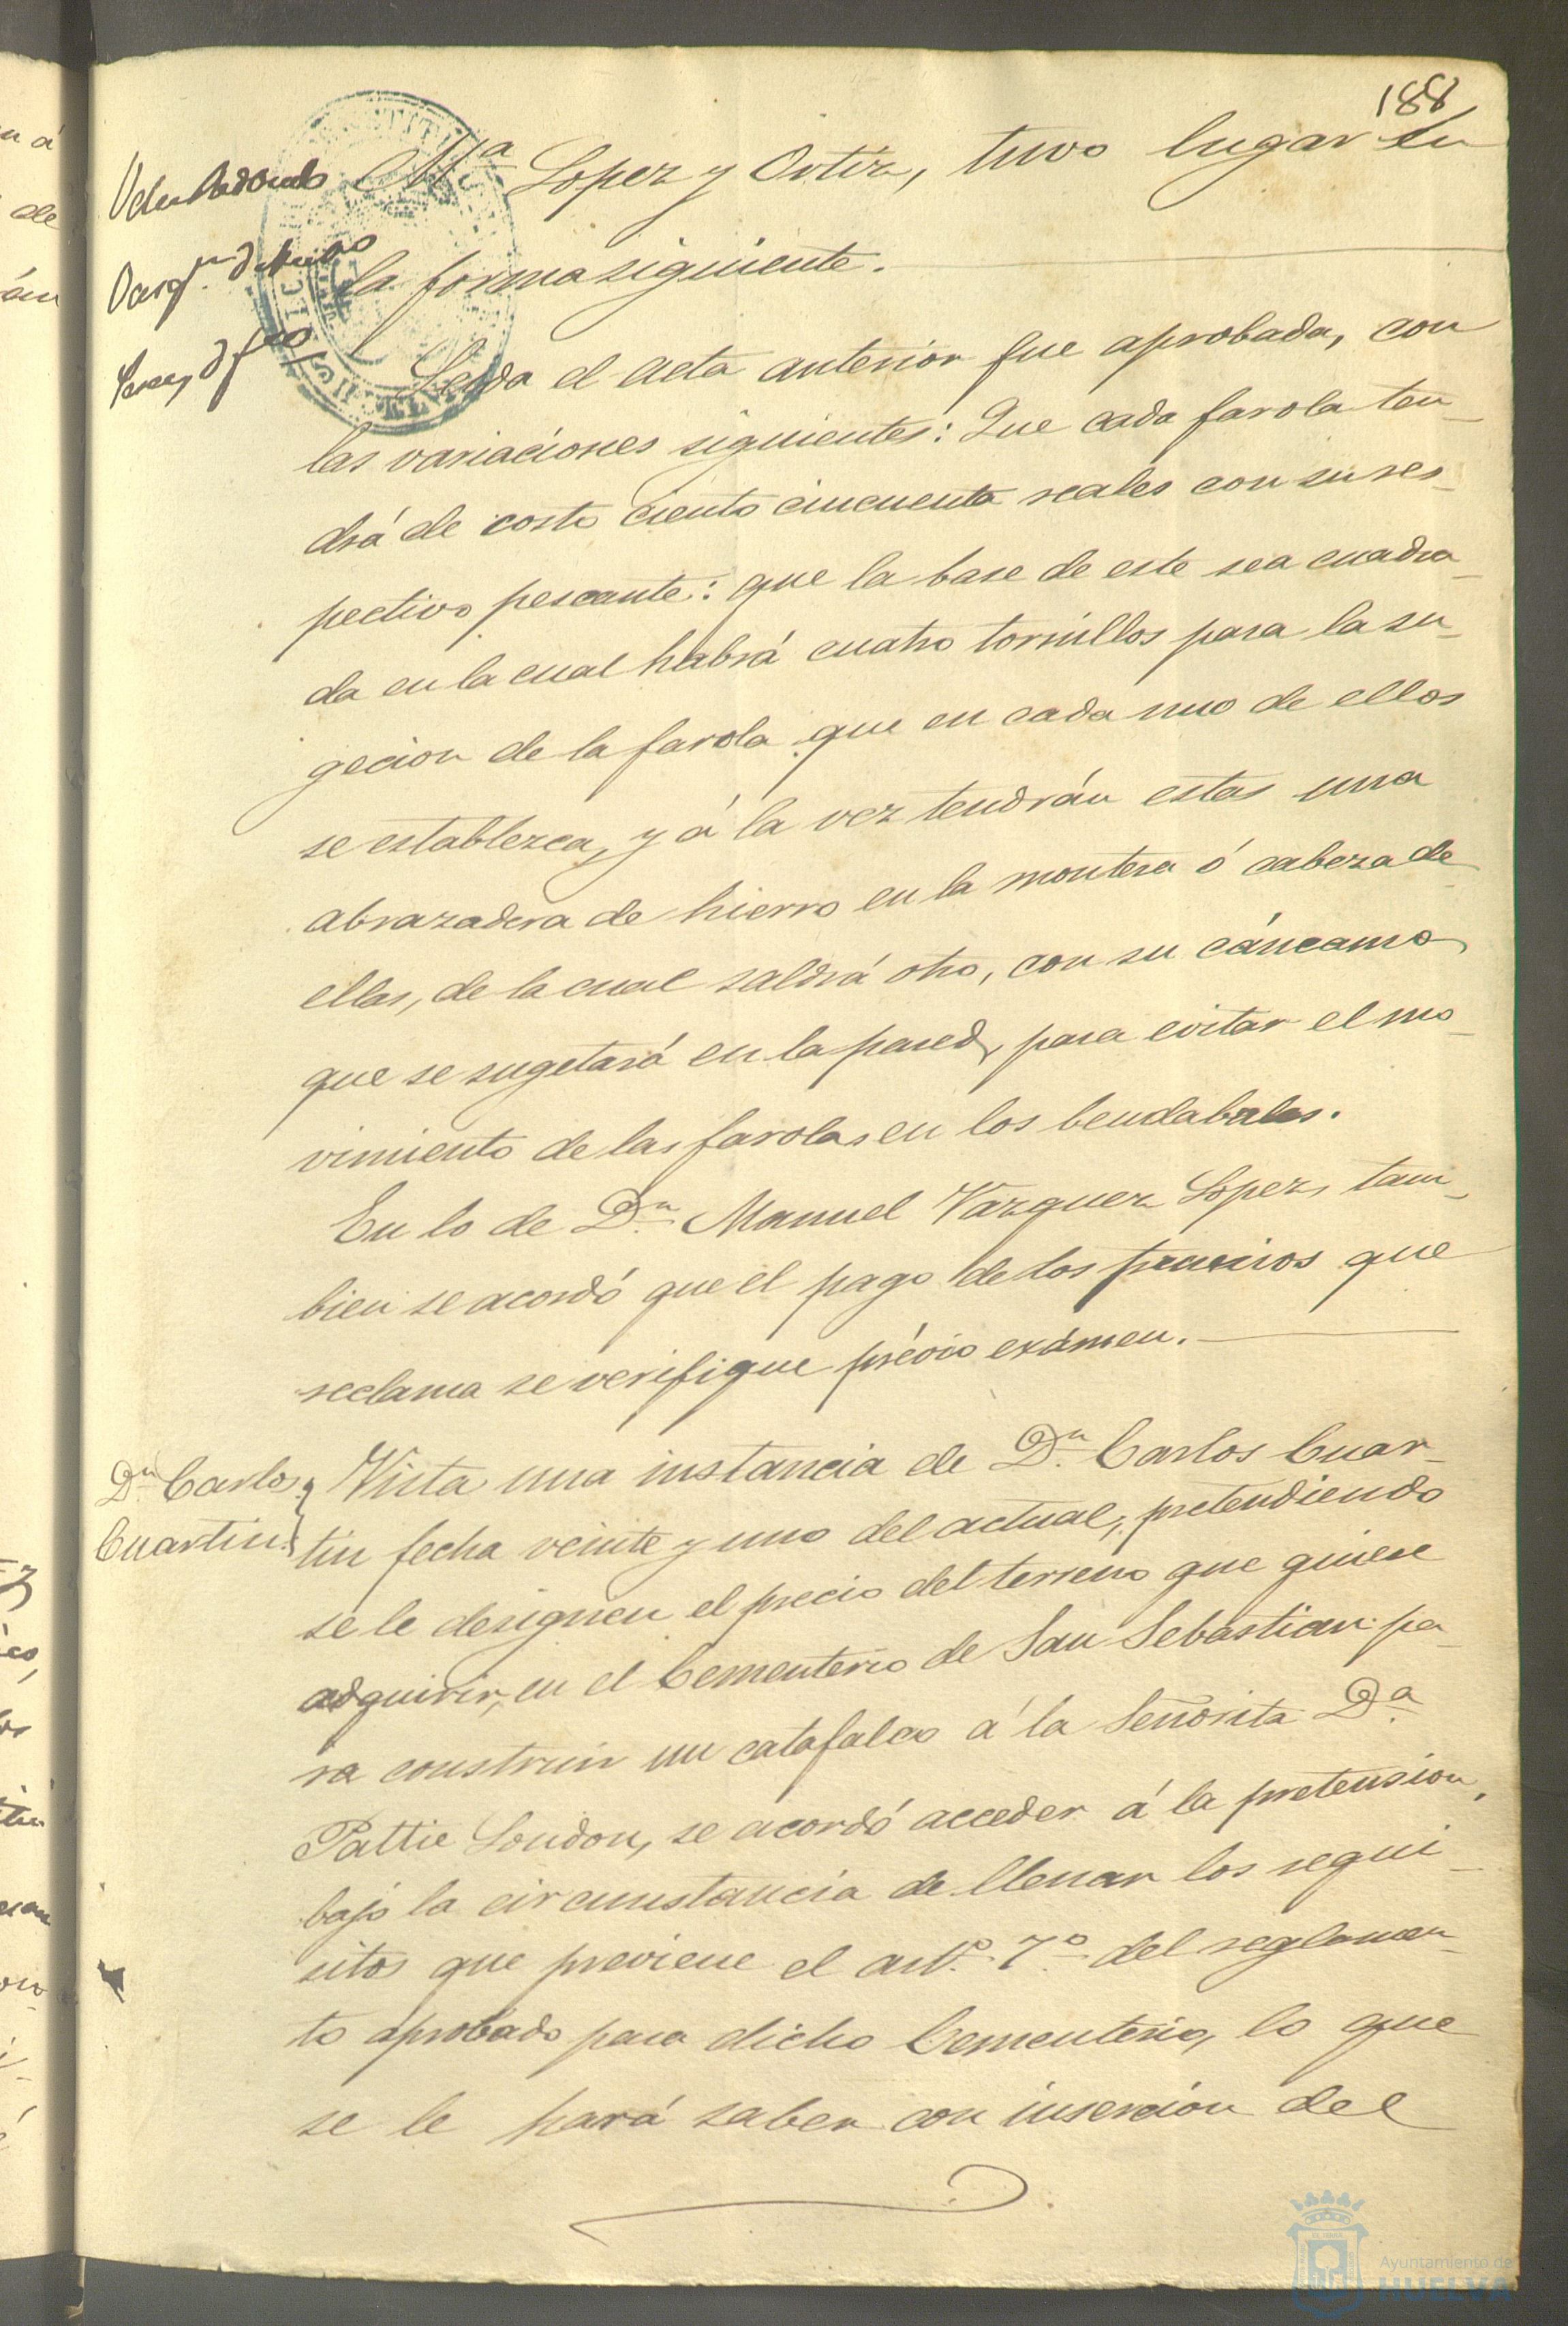 188
Mª Lopez y Ortiz, tuvo lugar en
la forma siguiente.
Leida el acta anterior fue aprobada, con
las variaciones siguientes: Que cada farola ten-
drá de costo ciento cincuenta reales con su res-
pectivo pescante: que la base de este sea cuadra-
da en la cual habrá cuatro tornillos para la su-
gecion de la farola que en cada uno de ellos
se establezca, y á la vez tendrán estas una
abrazadera de hierro en la montera ó cabeza de
ellas, de la cual saldrá otro, con su cáncamo
que se sugetará en la pared, para evitar el mo-
vimiento de las farolas en los bendabales.
En lo de Dn. Manuel Vazquez Lopez, tam-
bien se acordó que el pago de los que
reclama se verifique prévio exámen.
Dn. Carlos
Cuartin
Vista una instancia de Dn. Carlos Cuar-
tin fecha veinte y uno del actual, pretendiendo
se le designen el precio del terreno que quiere
adquirir, en el Cementerio de San Sebastian pa-
ra construir un catafalco á la Señorita Dª.
Pattie London, se acordó acceder á la pretension,
bajo la circunstancia de llenar los requi-
sitos que previene el artº. 7º. del reglamen-
to aprobado para dicho Cementerio, lo que
se le hará saber con insercion del
Ayuntamiento de
HUELVA